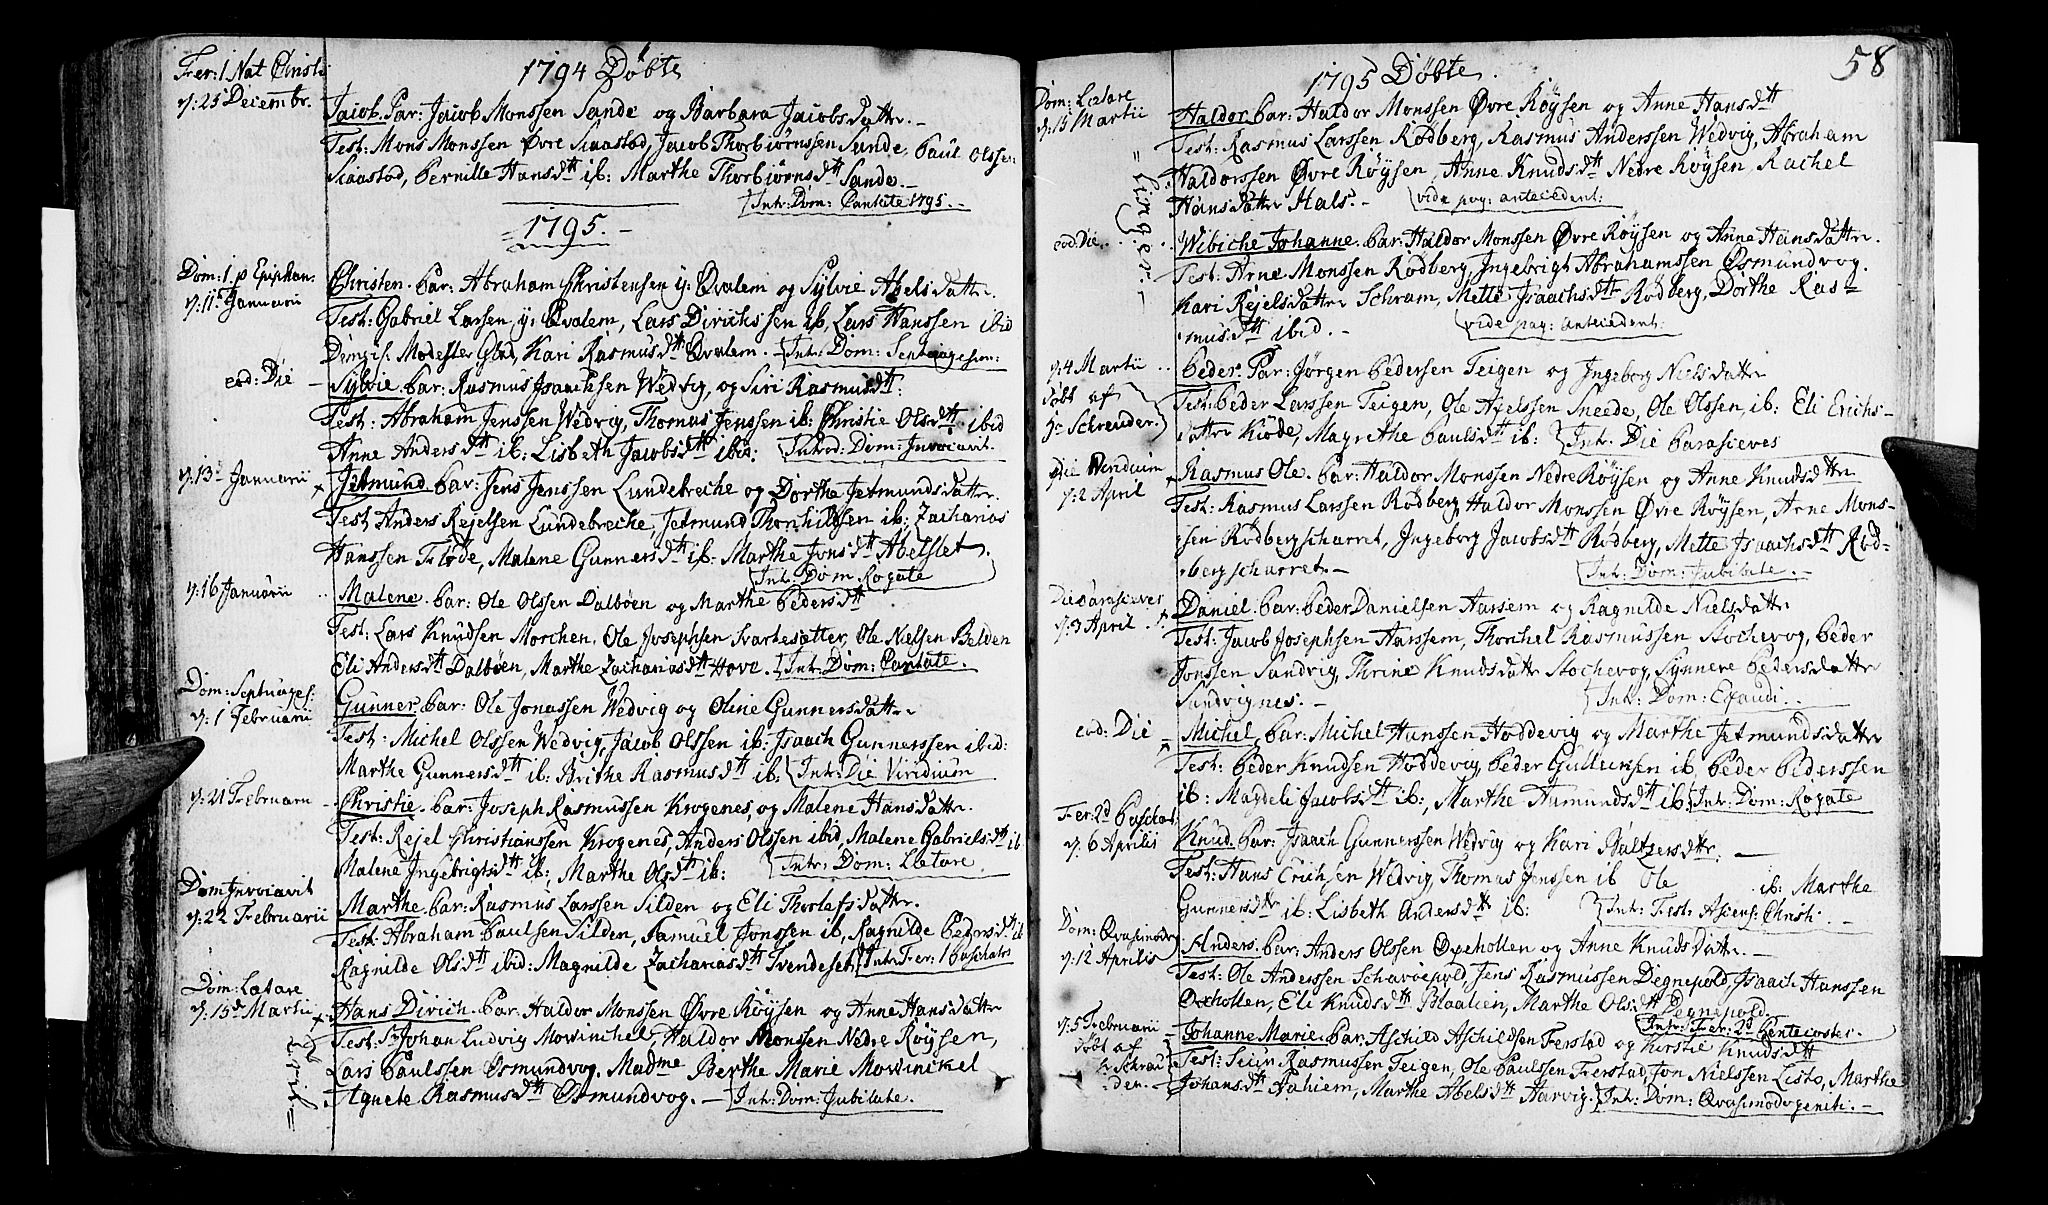 1794 Döbte
Fer: 1 Nat Christi
d: 25 Decembr.
Jacob. Par: Jacob Monssen Sande og Barbara Jacobsdatter.
Test: Mons Monssen Øvre Siaastad, Jacob Thorbiørnssen Sande, Paul Olssen
Siaastad, Pernille Hansdtt ib: Marthe Thorbiørnsdtt Sande.
Intr: Dom: Cantate 1795.
1795.
Dom: 1 p Epiphan.
d: 11 Januarii
Christen. Par: Abraham Christensen y: Qvalem og Sylvie Abelsdatter.
Test: Gabriel Larsen, y: Qvalem, Lars Dirichssen ib, Lars Hanssen ibid
Modester Glad, Kari Rasmusdtt Qvalem. Intr: Dom: Septuagesim:
eod: Die
Sylvie. Par: Rasmus Isaachsen Wedvig, og Siri Rasmusdtt:
Test: Abraham Jenssen Wedvig, Thomas Jenssen ib: Christie Olsdtt ibid
Anne Andersdtt ib: Lisbeth Jacobsdtt ibid: Introd: Dom: Invocavit.
d: 13 Januarii
Jetmund Par: Jens Jenssen Lundebreche og Dorthe Jetmundsdatter.
Test Anders Rejelsen Lundebreche, Jetmund Thorkildsen ib: Zacharias
Hanssen Fløde, Malene Gunnersdtt ib: Marthe Jonsdtt Abelslet.
Intr: Dom Rogate
d: 16 Januarii
Malene. Par: Ole Olssen Dalbøen og Marthe Pedersdtt
Test: Lars Knudsen Morchen, Ole Josephsen Svartesætter, Ole Nielsen Belden
Eli Andersdtt Dalbøen, Marthe Zachariasdtt Hove. Intr: Dom: Cantate.
Dom: Septuages:
d: 1 Februarii
Gunner. Par: Ole Jonassen Wedvig og Oline Gunnersdatter
Test: Michel Olssen Wedvig, Jacob Olssen ib: Isaach Gunnerssen ibid:
Marthe Gunnersdtt ib: Brithe Rasmusdtt ib: Intr: Die Viridium
d: 21 Februarii
Christie. Par: Joseph Rasmussen Krogenes, og Malene Hansdatter.
Test: Rejel Christianssen Krogenes, Anders Olssen ibid, Malene Gabrielsdtt ib
Malene Ingebrigtsdtt ib: Marthe Olsdtt ib: Intr: Dom: Lætare
Dom Invocavit
d: 22 Februarii
Marthe. Par: Rasmus Larssen Silden og Eli Thorlafsdatter.
Test: Abraham Paulsen Silden, Samuel Jonssen ib, Ragnilde Pedersdtt ib
Ragnilde Olsdtt ibid: Magnilde Zachariasdtt Svendeset. Intr: Fer: 1 Paschatos
Dom: Lætare
d: 15 Martii
Hans Dirich. Par: Haldor Monssen Øvre Røysen og Anne Hansdatter
Test: Sr Johan Ludvig Mowinchel, Haldor Monssen Nedre Røysen,
Lars Paulssen Osmundvog, Madme Berthe Marie Mowinckel
Agnete Rasmusdtt Osmundvog. Intr: Dom: Jubilate.
58
1795 Döbte.
Dom: Lætare
d: 15 Martii
= Linger: =
Haldor. Par: Haldor Monssen Øvre Røysen og Anne Hansdtt
Test: Rasmus Larssen Rødberg, Rasmus Anderssen Wedvig, Abraham
Haldorssen Øvre Røysen, Anne Knudsdtt Nedre Røysen, Rachel
Hansdatter Hals.
vide pag: antecedent:
eod: Die
Wibiche Johanne. Par: Haldor Monssen Øvre Røysen og Anne Hansdatter.
Test: Arne Monssen Rødberg, Ingebrigt Abrahamssen Osmundvog.
Kari Rejelsdatter Schram, Mette Isaachsdtt Rødberg, Dorthe Ras=
musdtt ibid.
vide pag: antecedent:
d: 4 Martii
döbt af
Hr Schreuder.
Peder. Par: Jørgen Pedersen Teigen og Ingeborg Nielsdatter
Test: Peder Larssen Teigen, Ole Axelssen Sneede, Ole Olssen, ib: Eli Erichs-
datter Kiøde, Magrethe Paulsdtt ib: Intr: Die Parasceves
Die Viridium
d: 2 April
Rasmus Ole. Par: Haldor Monssen Nedre Røysen og Anne Knudsdatter
Test: Rasmus Larssen Rødberg, Haldor Monssen Øvre Røysen, Arne Mons-
sen Rødbergscharret, Ingeborg Jacobsdtt Rødberg, Mette Isaachsdtt Rød-
bergscharret.
Intr: Dom: Jubilate.
Die Parasceves
d: 3 April
Daniel. Par: Peder Danielsen Aarsem og Ragnilde Nielsdatter
Test: Jacob Josephsen Aarsem, Thorchel Rasmussen Stochevog, Peder
Jonssen Sandvig, Thrine Knudsdatter Stochevog, Synneve Pedersdatter
Sandvignes.
Intr: Dom: Exaudi.
eod: Die
Michel. Par: Michel Hanssen Hoddevig og Marthe Jetmundsdatter
Test: Peder Knudsen Hoddevig, Peder Gullecksen ib, Peder Pederssen
ib: Magdeli Jacobsdtt ib:, Marthe Aamundsdtt ib: Intr: Dom: Rogate
Fer: 2d Paschat.
d: 6 Aprilis
Knud. Par: Isaach Gunnerssen Wedvig og Kari Baltzersdtr:
Test: Hans Erichsen Wedvig, Thomas Jenssen ib Ole ib: Marthe
Gunnersdtr ib: Lisbeth Andersdtt ib: Intr: Fest: Ascens: Christi.
Dom: Qvasimodo
d: 12 Aprilis
Anders. Par: Anders Olssen Oxehollen og Anne Knudsdatter
Test: Ole Anderssen Scharvepold, Jens Rasmussen Degnepold, Isaach Hanssen
Oxehollen, Eli Knudsdtt Blaalien, Marthe Olsdtt Degnepold.
Intr: Fer: 2d Pentecostes.
d: 5 Februarii
döbt af
Hr Schreu
der.
Johanne Marie. Par: Aschild Aschildssen Ferstad og Kirstie Knudsdtt
Test: Rasmussen Teigen, Ole Paulssen Ferstad, Jon Nielssen Listo, Marthe
Johansdtt Aahiem, Marthe Abelsdtt Aarvig. Intr: Dom: Qvasimodogeniti.